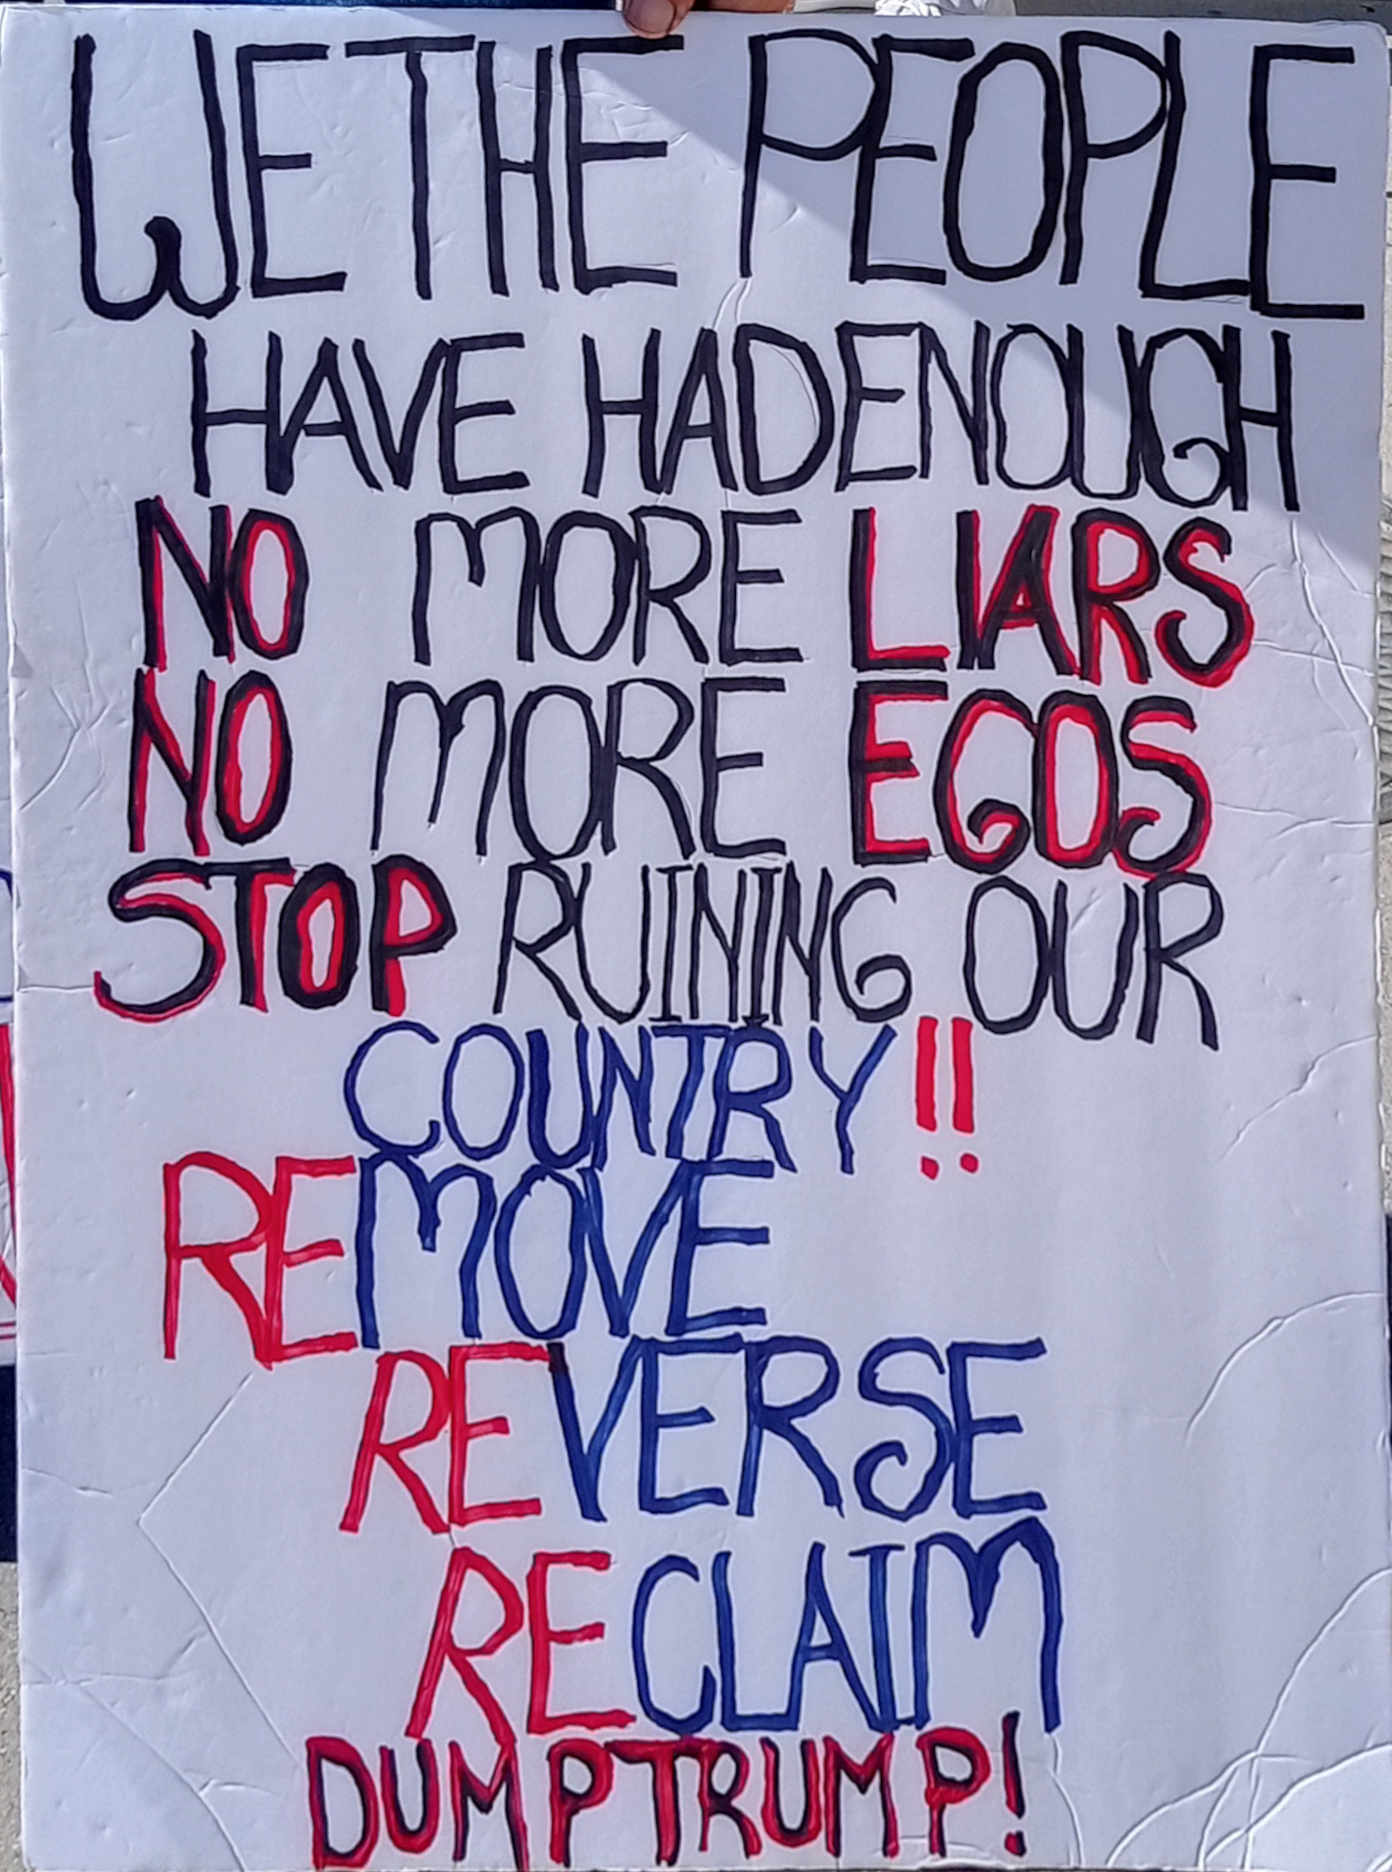 WE THE PEOPLE
HAVE HAD ENOUGH
NO MORE LIARS
NO MORE EGOS
STOP RUINING OUR
COUNTRY!!
REMOVE
REVERSE
RECLAIM
DUMP TRUMP!